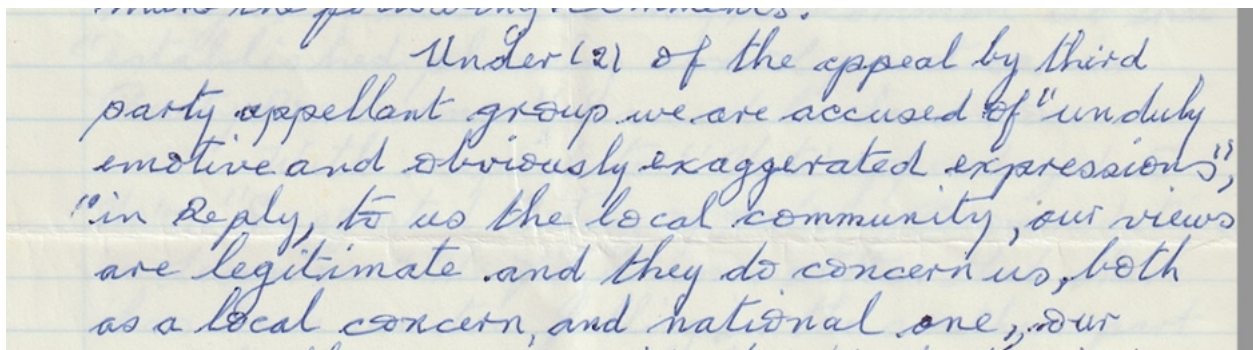 make the following comments.
Under (2) of the appeal by third
party appellant group we are accused of "unduly
emotive and obviously exaggerated expressions",
"in Reply, to us the local community, our views
are legitimate and they do concern us, both
as a local concern, and national one, our